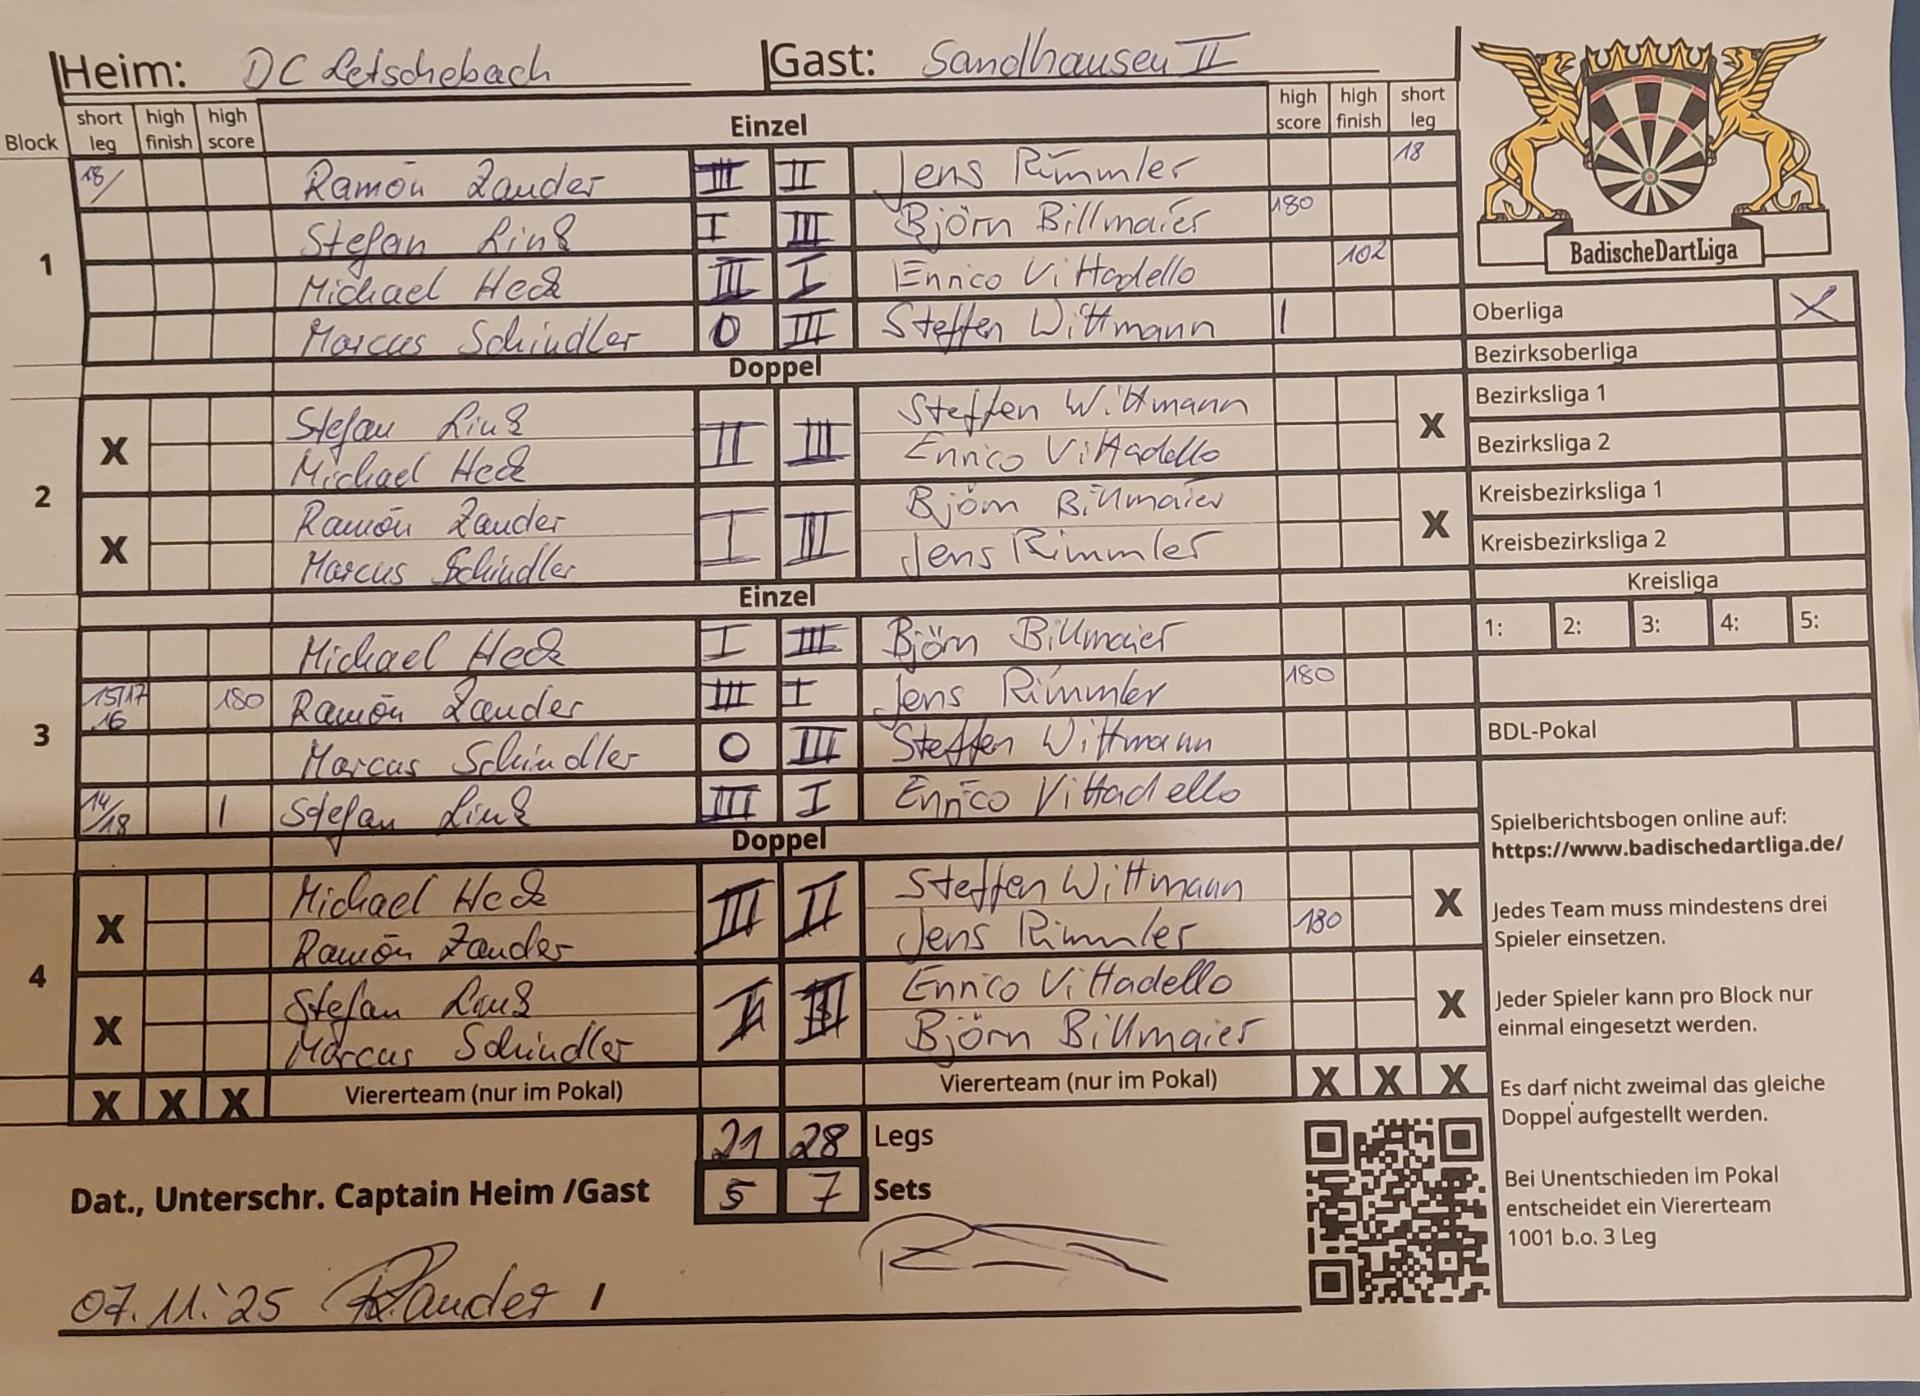 Heim: DC Letschebach Gast: Sandhausen II
Block short leg high finish high score Einzel high score high finish short leg
1
18/ Ramón Zander III II Jens Rimmler 18
Stefan Link I III Björn Billmaier 180
Michael Heck III I Enrico Vittadello 102
Marcus Schindler 0 III Steffen Wittmann |
Doppel
2
X Stefan Link II III Steffen Wittmann X
Michael Heck Enrico Vittadello
X Ramón Zander I III Björn Billmaier X
Marcus Schindler Jens Rimmler
Einzel
3
Michael Heck I III Björn Billmaier
15/17 16 180 Ramón Zander III I Jens Rimmler 180
Marcus Schindler 0 III Steffen Wittmann
14/18 | Stefan Link III I Enrico Vittadello
Doppel
4
X Michael Heck III II Steffen Wittmann X
Ramón Zander Jens Rimmler 180
X Stefan Link II III Enrico Vittadello X
Marcus Schindler Björn Billmaier
X X X Viererteam (nur im Pokal) Viererteam (nur im Pokal) X X X
21 28 Legs
Dat., Unterschr. Captain Heim /Gast 5 7 Sets
07.11.'25 R.Zander /
BadischeDartLiga
Oberliga X
Bezirksoberliga
Bezirksliga 1
Bezirksliga 2
Kreisbezirksliga 1
Kreisbezirksliga 2
Kreisliga
1: 2: 3: 4: 5:
BDL-Pokal
Spielberichtsbogen online auf:
https://www.badischedartliga.de/
Jedes Team muss mindestens drei
Spieler einsetzen.
Jeder Spieler kann pro Block nur
einmal eingesetzt werden.
Es darf nicht zweimal das gleiche
Doppel aufgestellt werden.
Bei Unentschieden im Pokal
entscheidet ein Viererteam
1001 b.o. 3 Leg